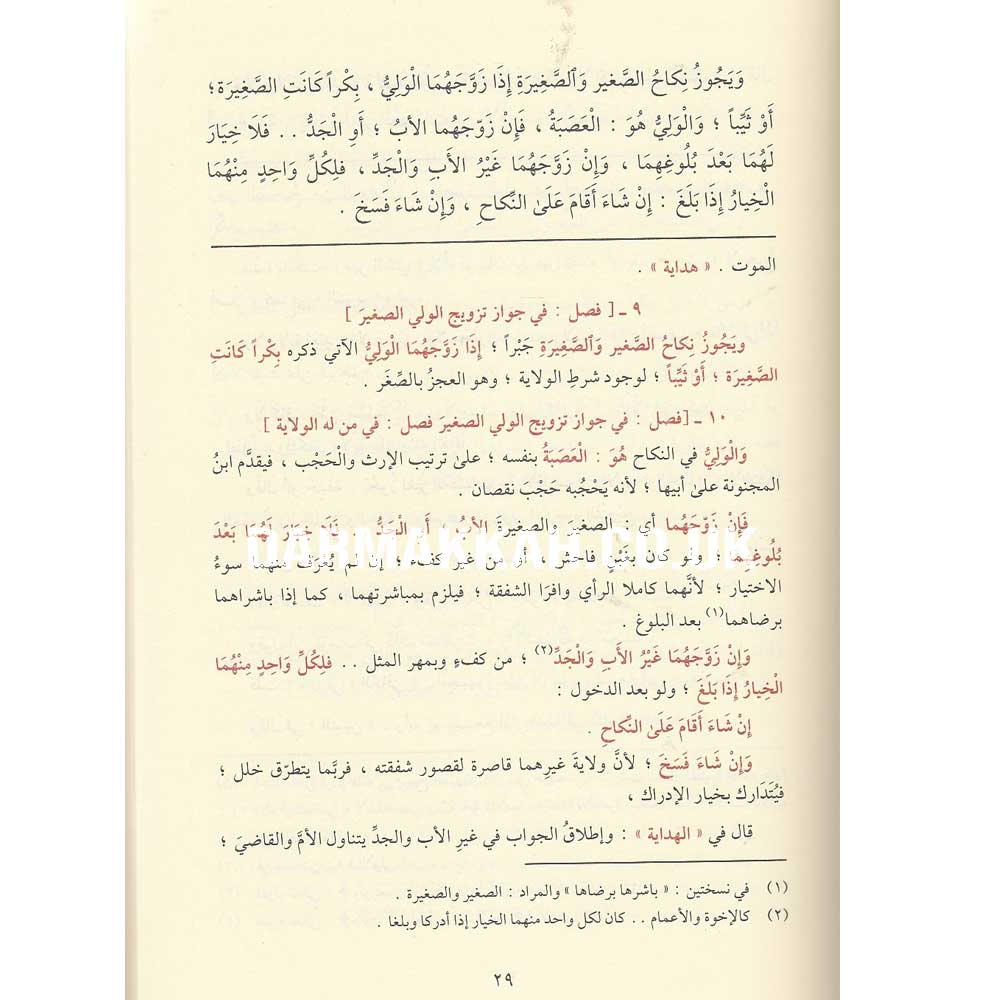 وَيَجُوزُ نِكَاحُ الصَّغيرِ وَالصَّغِيرَةِ إِذَا زَوَّجَهُمَا الْوَلِيُّ ، بِكْراً كَانَتِ الصَّغِيرَة ؛
أَوْ ثَيِّباً ؛ وَالْوَلِيُّ هُوَ : الْعَصَبَةُ ، فَإِنْ زَوَّجَهُما الأبُ ؛ أَوِ الْجَدُّ .. فَلَا خِيَارَ
لَهُمَا بَعْدَ بُلُوغِهِمَا ، وَإِنْ زَوَّجَهُمَا غَيْرُ الأَبِ وَالْجَدِّ ، فَلِكُلِّ وَاحِدٍ مِنْهُمَا
الْخِيَارُ إِذَا بَلَغَ : إِنْ شَاءَ أَقَامَ عَلَىٰ النِّكَاحِ ، وَإِنْ شَاءَ فَسَخَ .
الموت . « هداية » .
٩ ـ [ فصل : في جواز تزويج الولي الصغيرَ ]
ويَجُوزُ نِكَاحُ الصَّغير وَالصَّغِيرَةِ جَبْراً ؛ إِذَا زَوَّجَهُمَا الْوَلِيُّ الآتي ذكره بِكْراً كَانَتِ
الصَّغِيرَة ؛ أَوْ ثَيِّباً ؛ لوجود شرطِ الولاية ؛ وهو العجزُ بالصِّغَر .
١٠ ـ [فصل : في جواز تزويج الولي الصغيرَ فصل : في من له الولاية ]
وَالْوَلِيُّ في النكاح هُوَ : الْعَصَبَةُ بنفسه ؛ علىٰ ترتيب الإرث والْحَجْب ، فيقدَّم ابنُ
المجنونة علىٰ أبيها ؛ لأنه يَحْجُبه حَجْبَ نقصان .
فَإِنْ زَوَّجَهُما أي : الصغيرَ والصغيرةَ الأبُ ؛ أَوِ الْجَدُّ .. فَلَا خِيَارَ لَهُمَا بَعْدَ
DARMAKKAH.CO.UK
بُلُوغِهِمَا ؛ ولو كان بغَبْنٍ فاحش ، أو من غير كفء ؛ إن لم يُعْرَف منهما سوءُ
الاختيار ؛ لأنَّهما كاملا الرأي وافرَا الشفقة ؛ فيلزم بمباشرتهما ، كما إذا باشراهما
برضاهما(١) بعد البلوغ .
وَإِنْ زَوَّجَهُمَا غَيْرُ الأَبِ وَالْجَدِّ(٢) ؛ من كفءٍ وبمهر المثل .. فَلِكُلِّ وَاحِدٍ مِنْهُمَا
الْخِيَارُ إِذَا بَلَغَ ؛ ولو بعد الدخول :
إِنْ شَاءَ أَقَامَ عَلَىٰ النِّكَاحِ .
وَإِنْ شَاءَ فَسَخَ ؛ لأنَّ ولايةَ غيرِهما قاصرة لقصور شفقته ، فربَّما يتطرّق خلل ؛
فيُتَدَارك بخيار الإدراك ،
قال في « الهداية » : وإطلاقُ الجواب في غيرِ الأب والجدِّ يتناول الأمَّ والقاضيَ ؛
(١) في نسختين : « باشرها برضاها » والمراد : الصغير والصغيرة .
(٢) كالإخوة والأعمام .. كان لكل واحد منهما الخيار إذا أدركا وبلغا .
٢٩